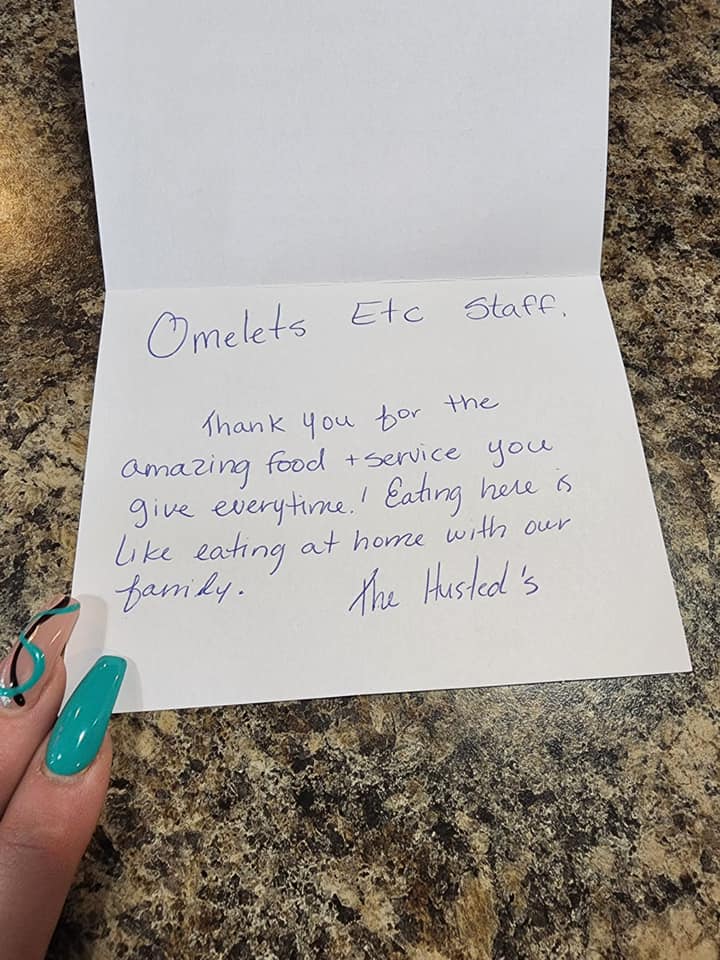 Omelets Etc Staff.
Thank you for the
amazing food + service you
give everytime! Eating here is
like eating at home with our
family.
The Husted's